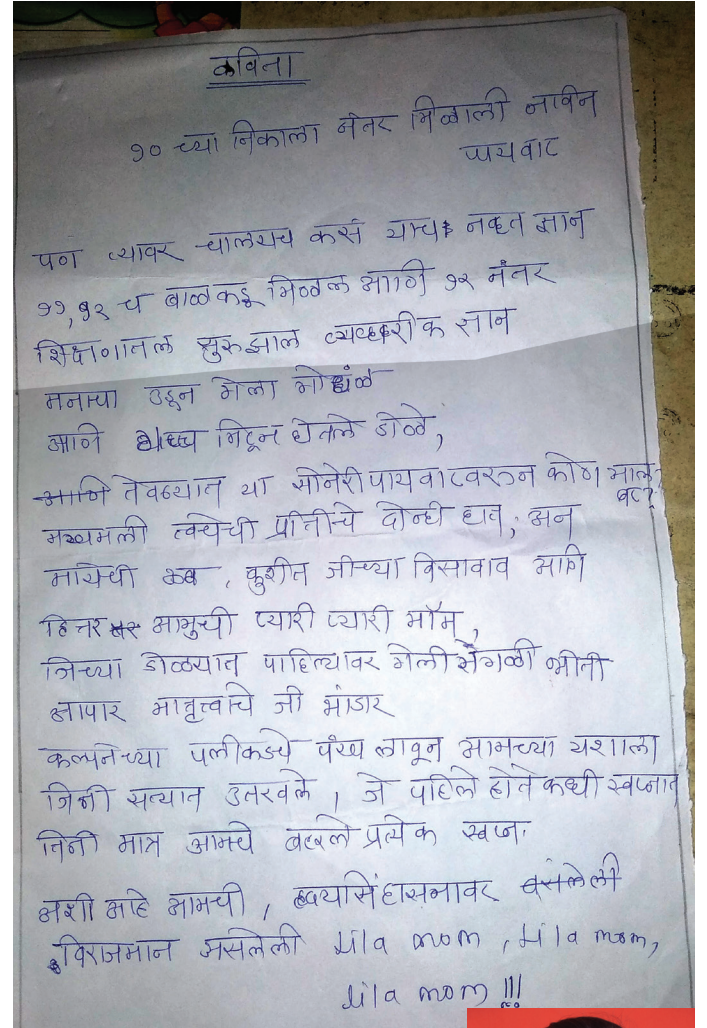 कविता
१० च्या निकाला नंतर मिळाली नाविन
पायवाट
पण त्यावर चालयच कसं याच नव्हत ज्ञान
११,१२ च बाळकडू मिळल आणि १२ नंतर
शिक्षणातल सुरु झाल व्यवहारीक ज्ञान
मनाचा उडून गेला गोंधळ
आणि गच्च मिटून घेतले डोळे,
आणि तेवढ्यात या सोनेरी पायवाटवरून कोण आलं?
बरं?
मखमली त्वचेची प्रितीचे दोन्ही हात, अन
मायेची ऊब, कुशीत जीच्या विसावाव आणि
हि तर आमुची प्यारी प्यारी मॉम,
जिच्या डोळ्यात पाहिल्यावर गेली सगळी भीती
अपार मातृत्वाचे जी भांडार
कल्पनेच्या पलीकडचे पंख लावून आमच्या यशाला
जिनी सत्यात उतरवले, जे पहिले होते कधी स्वप्नात
तिनी मात्र आमचे बहरले प्रत्येक स्वप्न.
अशी आहे आमची, हृदयासिंहासनावर बसलेली
विराजमान असलेली lila mom, lila mom,
lila mom !!!